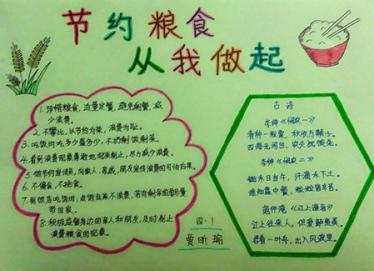 节约粮食
从我做起
1.珍惜粮食,适量定餐,避免剩餐,减
少浪费。
2.不攀比,以节约为荣,浪费为耻。
3.吃饭时吃多少盛多少,不扔剩饭剩菜。
4.看到浪费现象勇敢地起来制止,尽力减少浪费。
5.做节约宣传员,向家人,亲戚,朋友宣传浪费的可怕后果。
6.不偏食,不挑食。
7.有饭店吃饭时,点饭菜不浪费,若有剩余的
带回家。
8.积极监督身边的亲人和朋友,及时制止
浪费粮食的现象。
四·1
黄昕瑜
古诗
李绅《悯农一》
春种一粒粟,秋收万颗子。
四海无闲田,农夫犹饿死。
李绅《悯农二》
锄禾日当午,汗滴禾下土。
谁知盘中餐,粒粒皆辛苦。
范仲淹《江上渔者》
江上往来人,但爱鲈鱼美。
君看一叶舟,出入风波里。